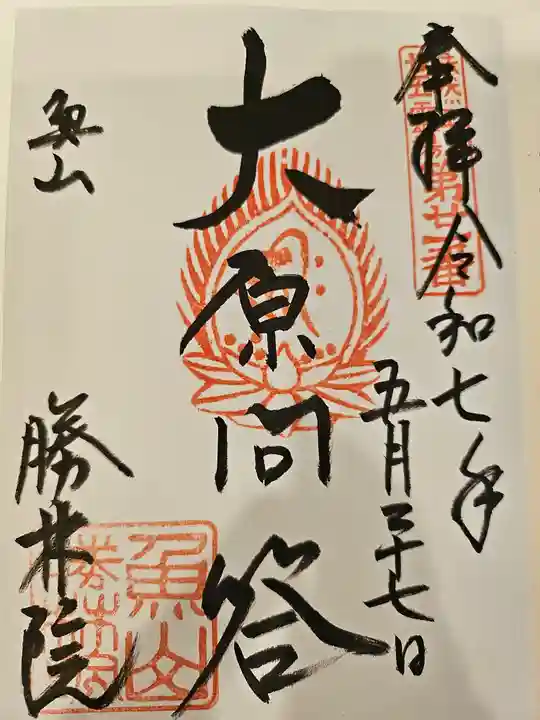 奉拝 令和七年
五月二十七日
大原問答
魚山
勝林院
第廿一番
魚山